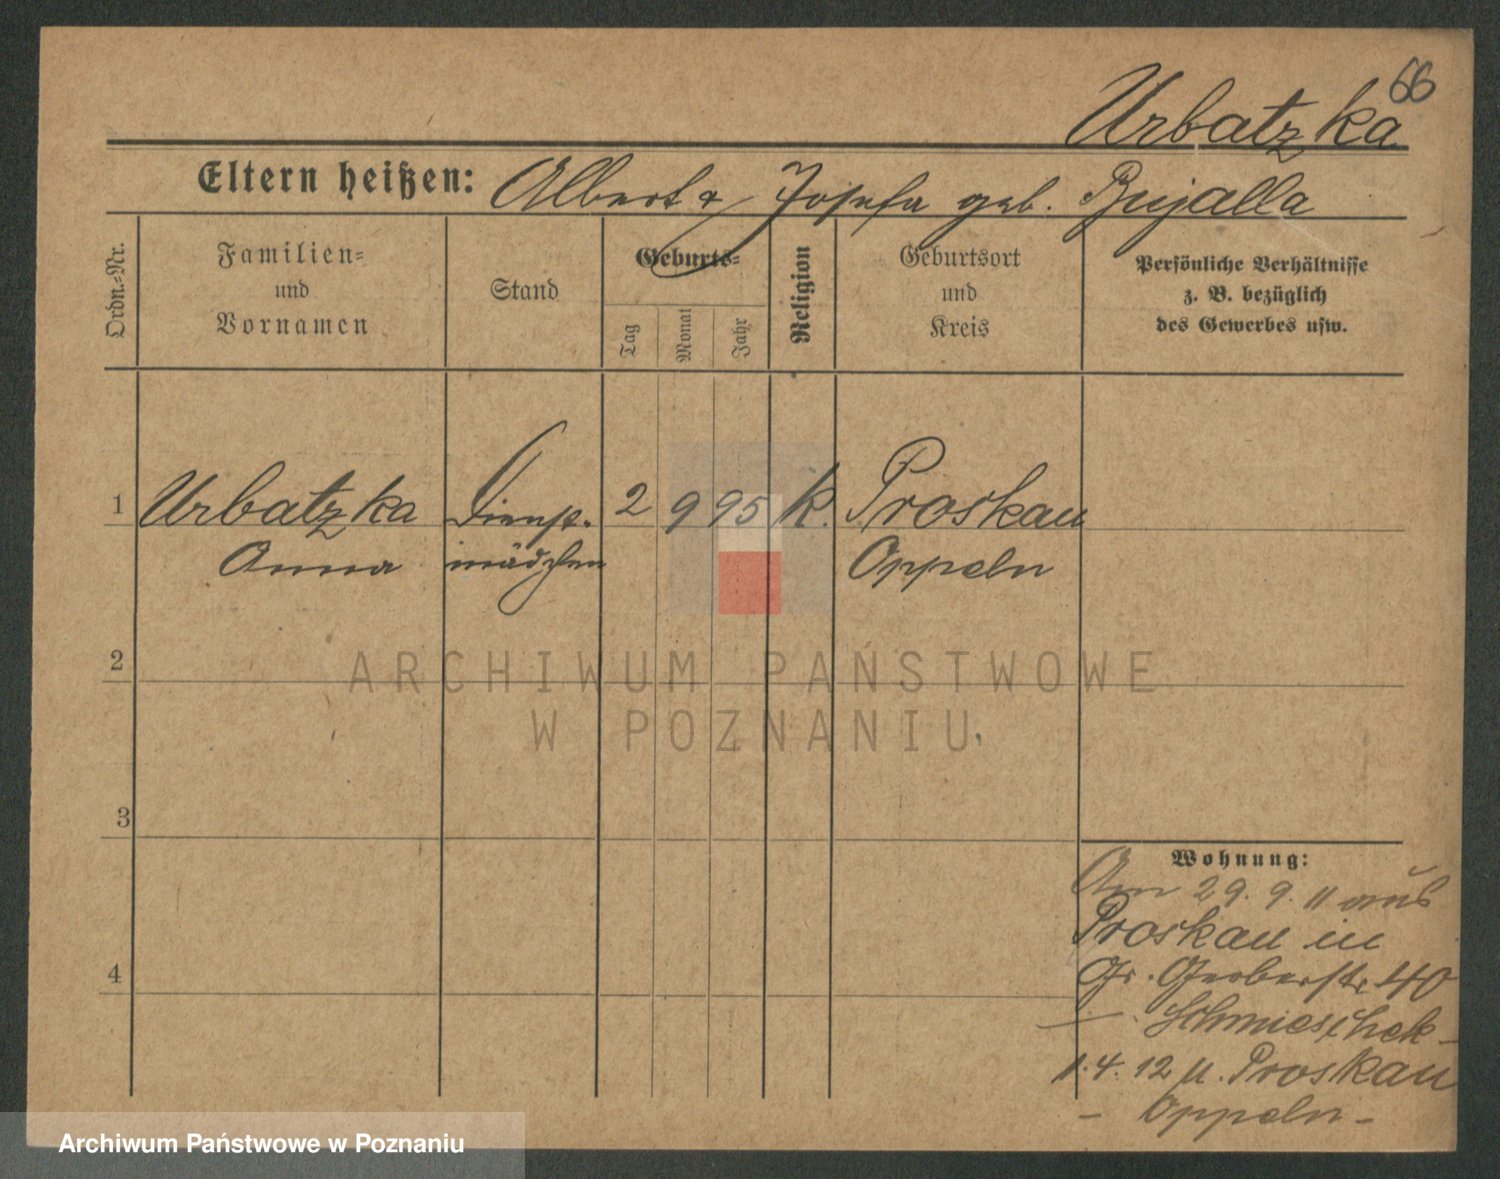 66
Urbatzka
Eltern heißen: Albert & Josefa geb. Bujalla
Ordn.-Nr.
Familien-
und
Vornamen
Stand
Geburts-
Tag
Monat
Jahr
Religion
Geburtsort
und
Kreis
Persönliche Verhältnisse
z. B. bezüglich
des Gewerbes usw.
1 Urbatzka Dienst- 2 9 95 k. Proskau
Anna mädchen Oppeln
2
3
4
Wohnung:
Am 29. 9. 11 aus
Proskau in
Gr. Gerberstr. 40
Schmieschek
1. 4. 12 n. Proskau
- Oppeln -
ARCHIWUM PAŃSTWOWE
W POZNANIU
Archiwum Państwowe w Poznaniu